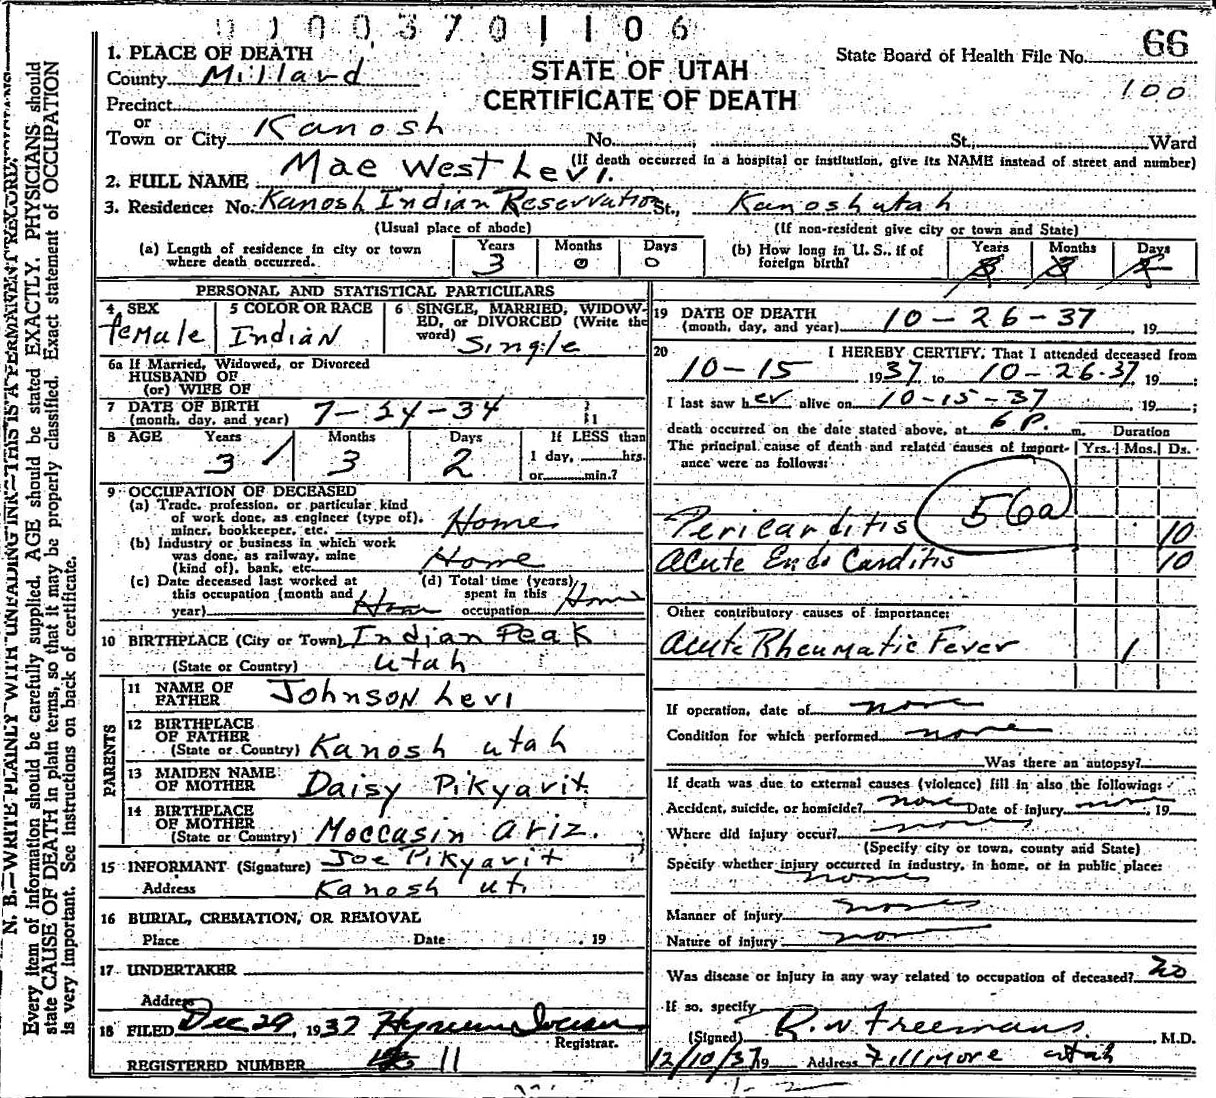 0 0 0 3 7 0 1 1 0 6
66
State Board of Health File No.
100
STATE OF UTAH
CERTIFICATE OF DEATH
1. PLACE OF DEATH
County Millard
Precinct
or
Town or City Kanosh No. St. Ward
(If death occurred in a hospital or institution, give its NAME instead of street and number)
2. FULL NAME Mae West Levi.
3. Residence: No. Kanosh Indian Reservation St., Kanosh utah
(Usual place of abode) (If non-resident give city or town and State)
(a) Length of residence in city or town where death occurred. Years 3 Months 0 Days 0
(b) How long in U. S., if of foreign birth? Years Months Days
PERSONAL AND STATISTICAL PARTICULARS
4 SEX female
5 COLOR OR RACE Indian
6 SINGLE, MARRIED, WIDOWED, or DIVORCED (Write the word) Single
6a If Married, Widowed, or Divorced
HUSBAND OF
(or) WIFE OF
7 DATE OF BIRTH (month, day, and year) 7-24-34
8 AGE Years 3 Months 3 Days 2 If LESS than 1 day, hrs. or min.?
9 OCCUPATION OF DECEASED
(a) Trade, profession, or particular kind of work done, as engineer (type of), miner, bookkeeper, etc. Home
(b) Industry or business in which work was done, as railway, mine (kind of), bank, etc. Home
(c) Date deceased last worked at this occupation (month and year) Home
(d) Total time (years) spent in this occupation Home
10 BIRTHPLACE (City or Town) Indian Peak
(State or Country) utah
PARENTS
11 NAME OF FATHER Johnson Levi
12 BIRTHPLACE OF FATHER (State or Country) Kanosh utah
13 MAIDEN NAME OF MOTHER Daisy Pikyavit
14 BIRTHPLACE OF MOTHER (State or Country) Moccasin Ariz.
15 INFORMANT (Signature) Joe Pikyavit
Address Kanosh ut.
16 BURIAL, CREMATION, OR REMOVAL
Place Date 19
17 UNDERTAKER
Address
18 FILED Dec 29, 1937
Registrar.
REGISTERED NUMBER 11
19 DATE OF DEATH (month, day, and year) 10-26-37, 19
20 I HEREBY CERTIFY, That I attended deceased from
10-15 1937 to 10-26-37, 19 ;
I last saw her alive on 10-15-37, 19 ;
death occurred on the date stated above, at 6 P. m. Duration
The principal cause of death and related causes of importance were as follows: Yrs. Mos. Ds.
56a
Pericarditis 10
Acute Endo Carditis 10
Other contributory causes of importance:
Acute Rheumatic Fever 1
If operation, date of none
Condition for which performed none
Was there an autopsy?
If death was due to external causes (violence) fill in also the following:
Accident, suicide, or homicide? none Date of injury none, 19
Where did injury occur? none
(Specify city or town, county and State)
Specify whether injury occurred in industry, in home, or in public place:
none
Manner of injury none
Nature of injury none
Was disease or injury in any way related to occupation of deceased? no
If so, specify
(Signed) R. W Freemans, M.D.
12/10/37 19 Address Fillmore utah
N. B.—WRITE PLAINLY WITH UNFADING INK—THIS IS A PERMANENT RECORD.
Every item of information should be carefully supplied. AGE should be stated EXACTLY. PHYSICIANS should
state CAUSE OF DEATH in plain terms, so that it may be properly classified. Exact statement of OCCUPATION
is very important. See instructions on back of certificate.